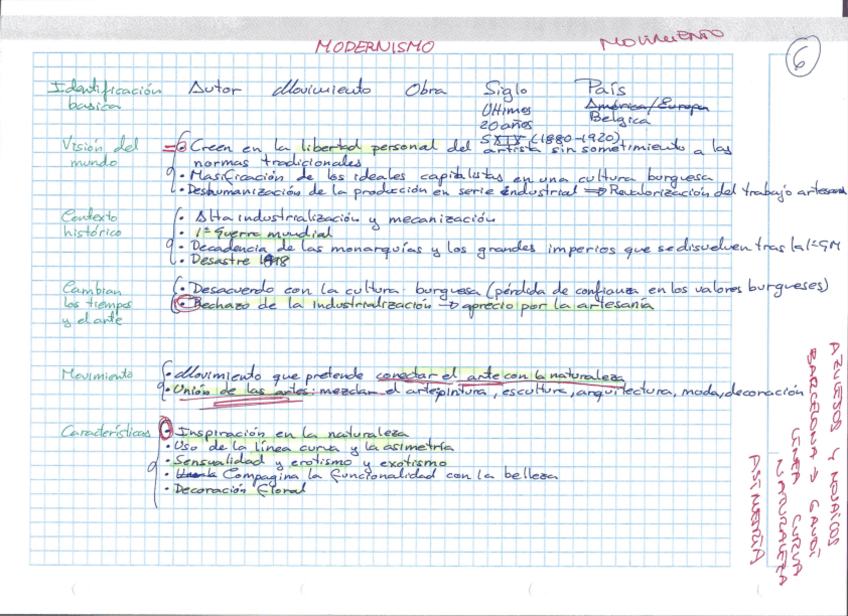 MODERNISMO
MOVIMIENTO
6
Identificación básica
Autor Movimiento Obra Siglo País
Últimos 20 años SXIX (1880-1920)
América/Europa
Belgica
Visión del mundo
• Creen en la libertad personal del artista sin sometimiento a las
normas tradicionales
• Masificación de los ideales capitalistas en una cultura burguesa
• Deshumanización de la producción en serie industrial => Revalorización del trabajo artesano
Contexto histórico
• Alta industrialización y mecanización
• 1ª Guerra mundial
• Decadencia de las monarquías y los grandes imperios que se disuelven tras la 1ªGM
• Desastre 1898
Cambian los tiempos y el arte
• Desacuerdo con la cultura burguesa (pérdida de confianza en los valores burgueses)
• Rechazo de la industrialización → aprecio por la artesanía
Movimiento
• Movimiento que pretende conectar el arte con la naturaleza
• Unión de las artes: mezclar el arte pintura, escultura, arquitectura, moda, decoración
Características
• Inspiración en la naturaleza
• Uso de la línea curva y la asimetría
• Sensualidad y erotismo y exotismo
• Compagina la funcionalidad con la belleza
• Decoración floral
AZULEJOS Y MOSAICOS
BARCELONA → GAUDÍ
LÍNEA CURVA
NATURALEZA
ASIMETRÍA